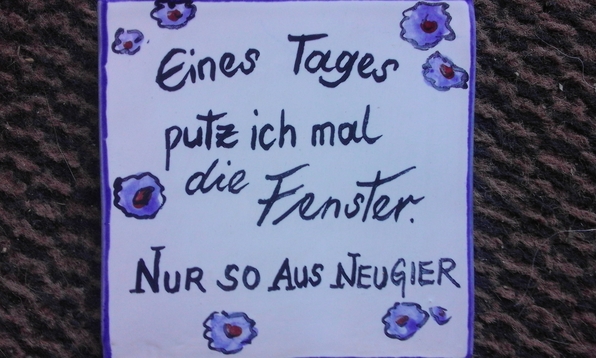 Eines Tages
putz ich mal
die Fenster.
NUR SO AUS NEUGIER